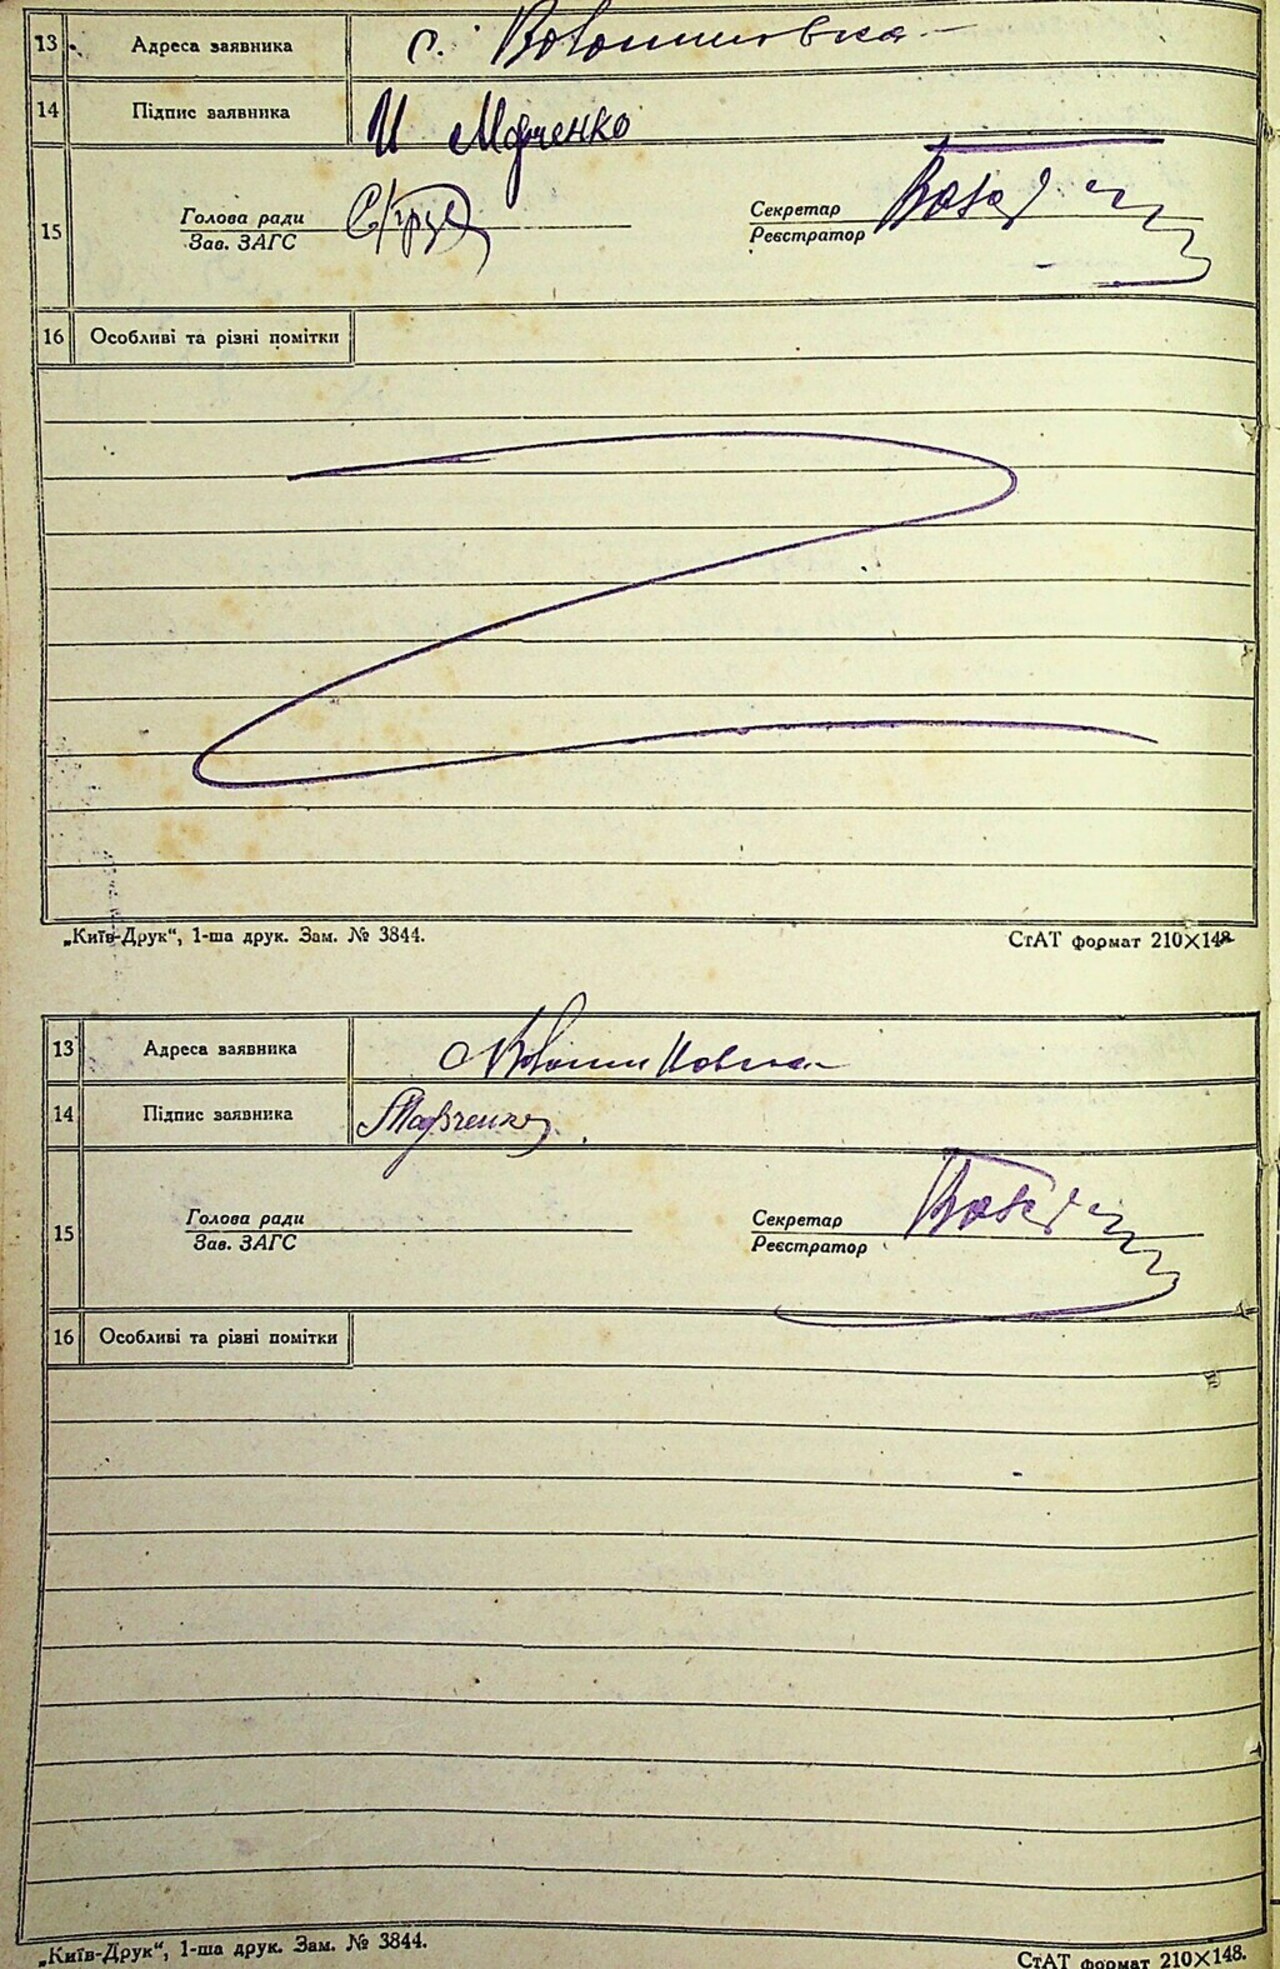 13 Адреса заявника с.
14 Підпис заявника И Марченко
15 Голова ради Секретар
Зав. ЗАГС Реєстратор
16 Особливі та різні помітки
„Київ-Друк“, 1-ша друк. Зам. № 3844. СтАТ формат 210×148
13 Адреса заявника
14 Підпис заявника Марченко
15 Голова ради Секретар
Зав. ЗАГС Реєстратор
16 Особливі та різні помітки
„Київ-Друк“, 1-ша друк. Зам. № 3844. СтАТ формат 210×148.